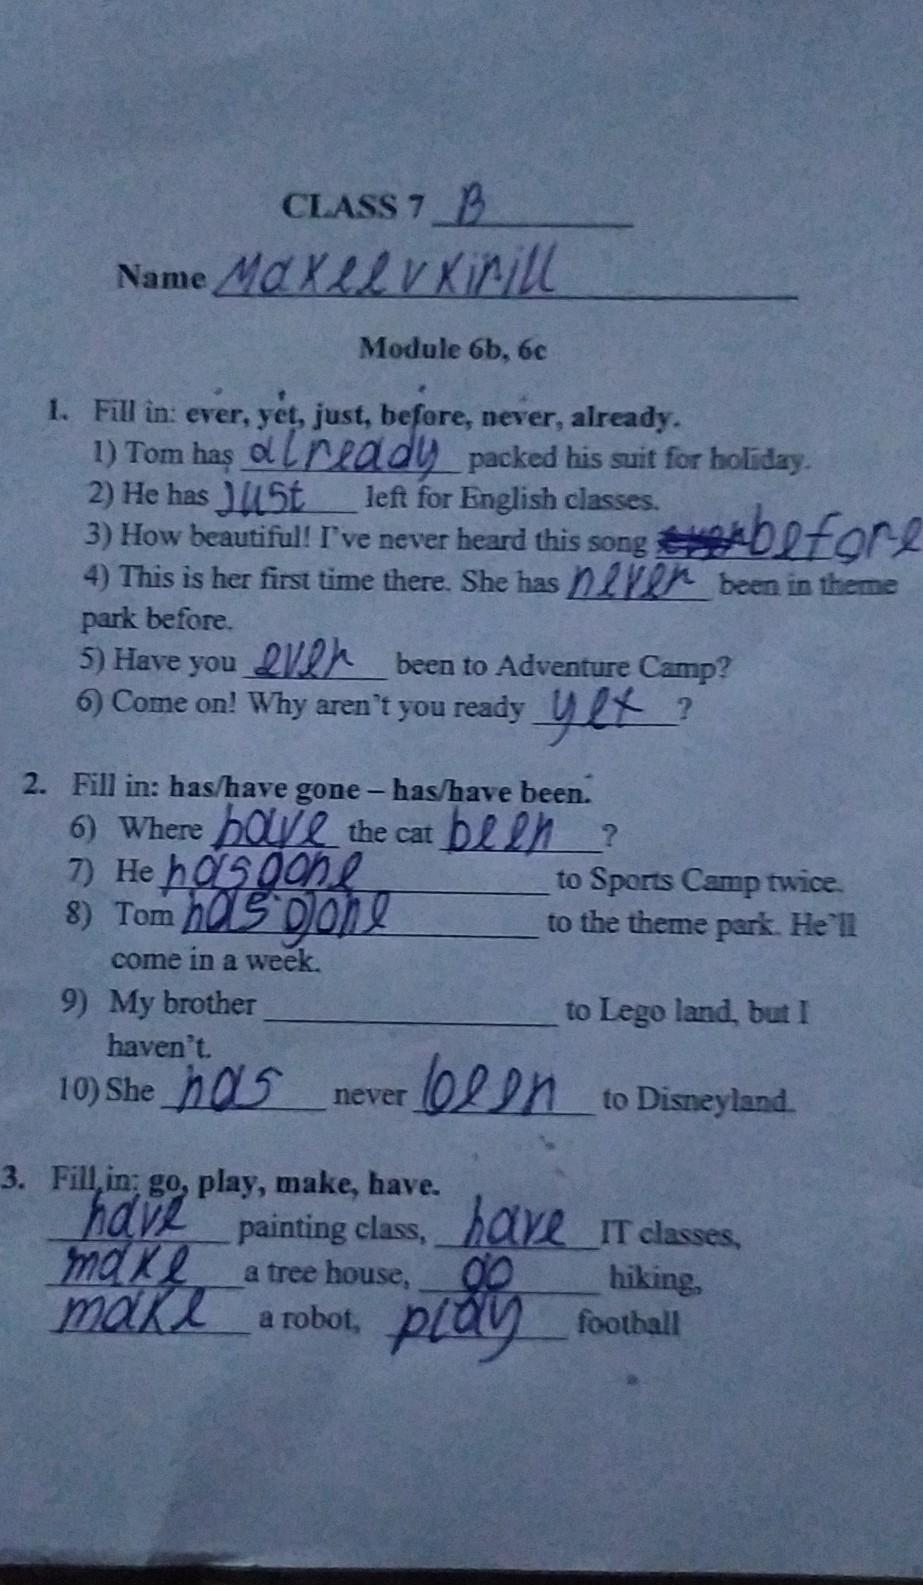 CLASS 7 B
Name Makeev Kirill
Module 6b, 6c
1. Fill in: ever, yet, just, before, never, already.
1) Tom has already packed his suit for holiday.
2) He has just left for English classes.
3) How beautiful! I've never heard this song before
4) This is her first time there. She has never been in theme
park before.
5) Have you ever been to Adventure Camp?
6) Come on! Why aren't you ready yet ?
2. Fill in: has/have gone – has/have been.
6) Where have the cat been ?
7) He has gone to Sports Camp twice.
8) Tom has gone to the theme park. He'll
come in a week.
9) My brother ____ to Lego land, but I
haven't.
10) She has never been to Disneyland.
3. Fill in: go, play, make, have.
have painting class, have IT classes,
make a tree house, go hiking,
make a robot, play football